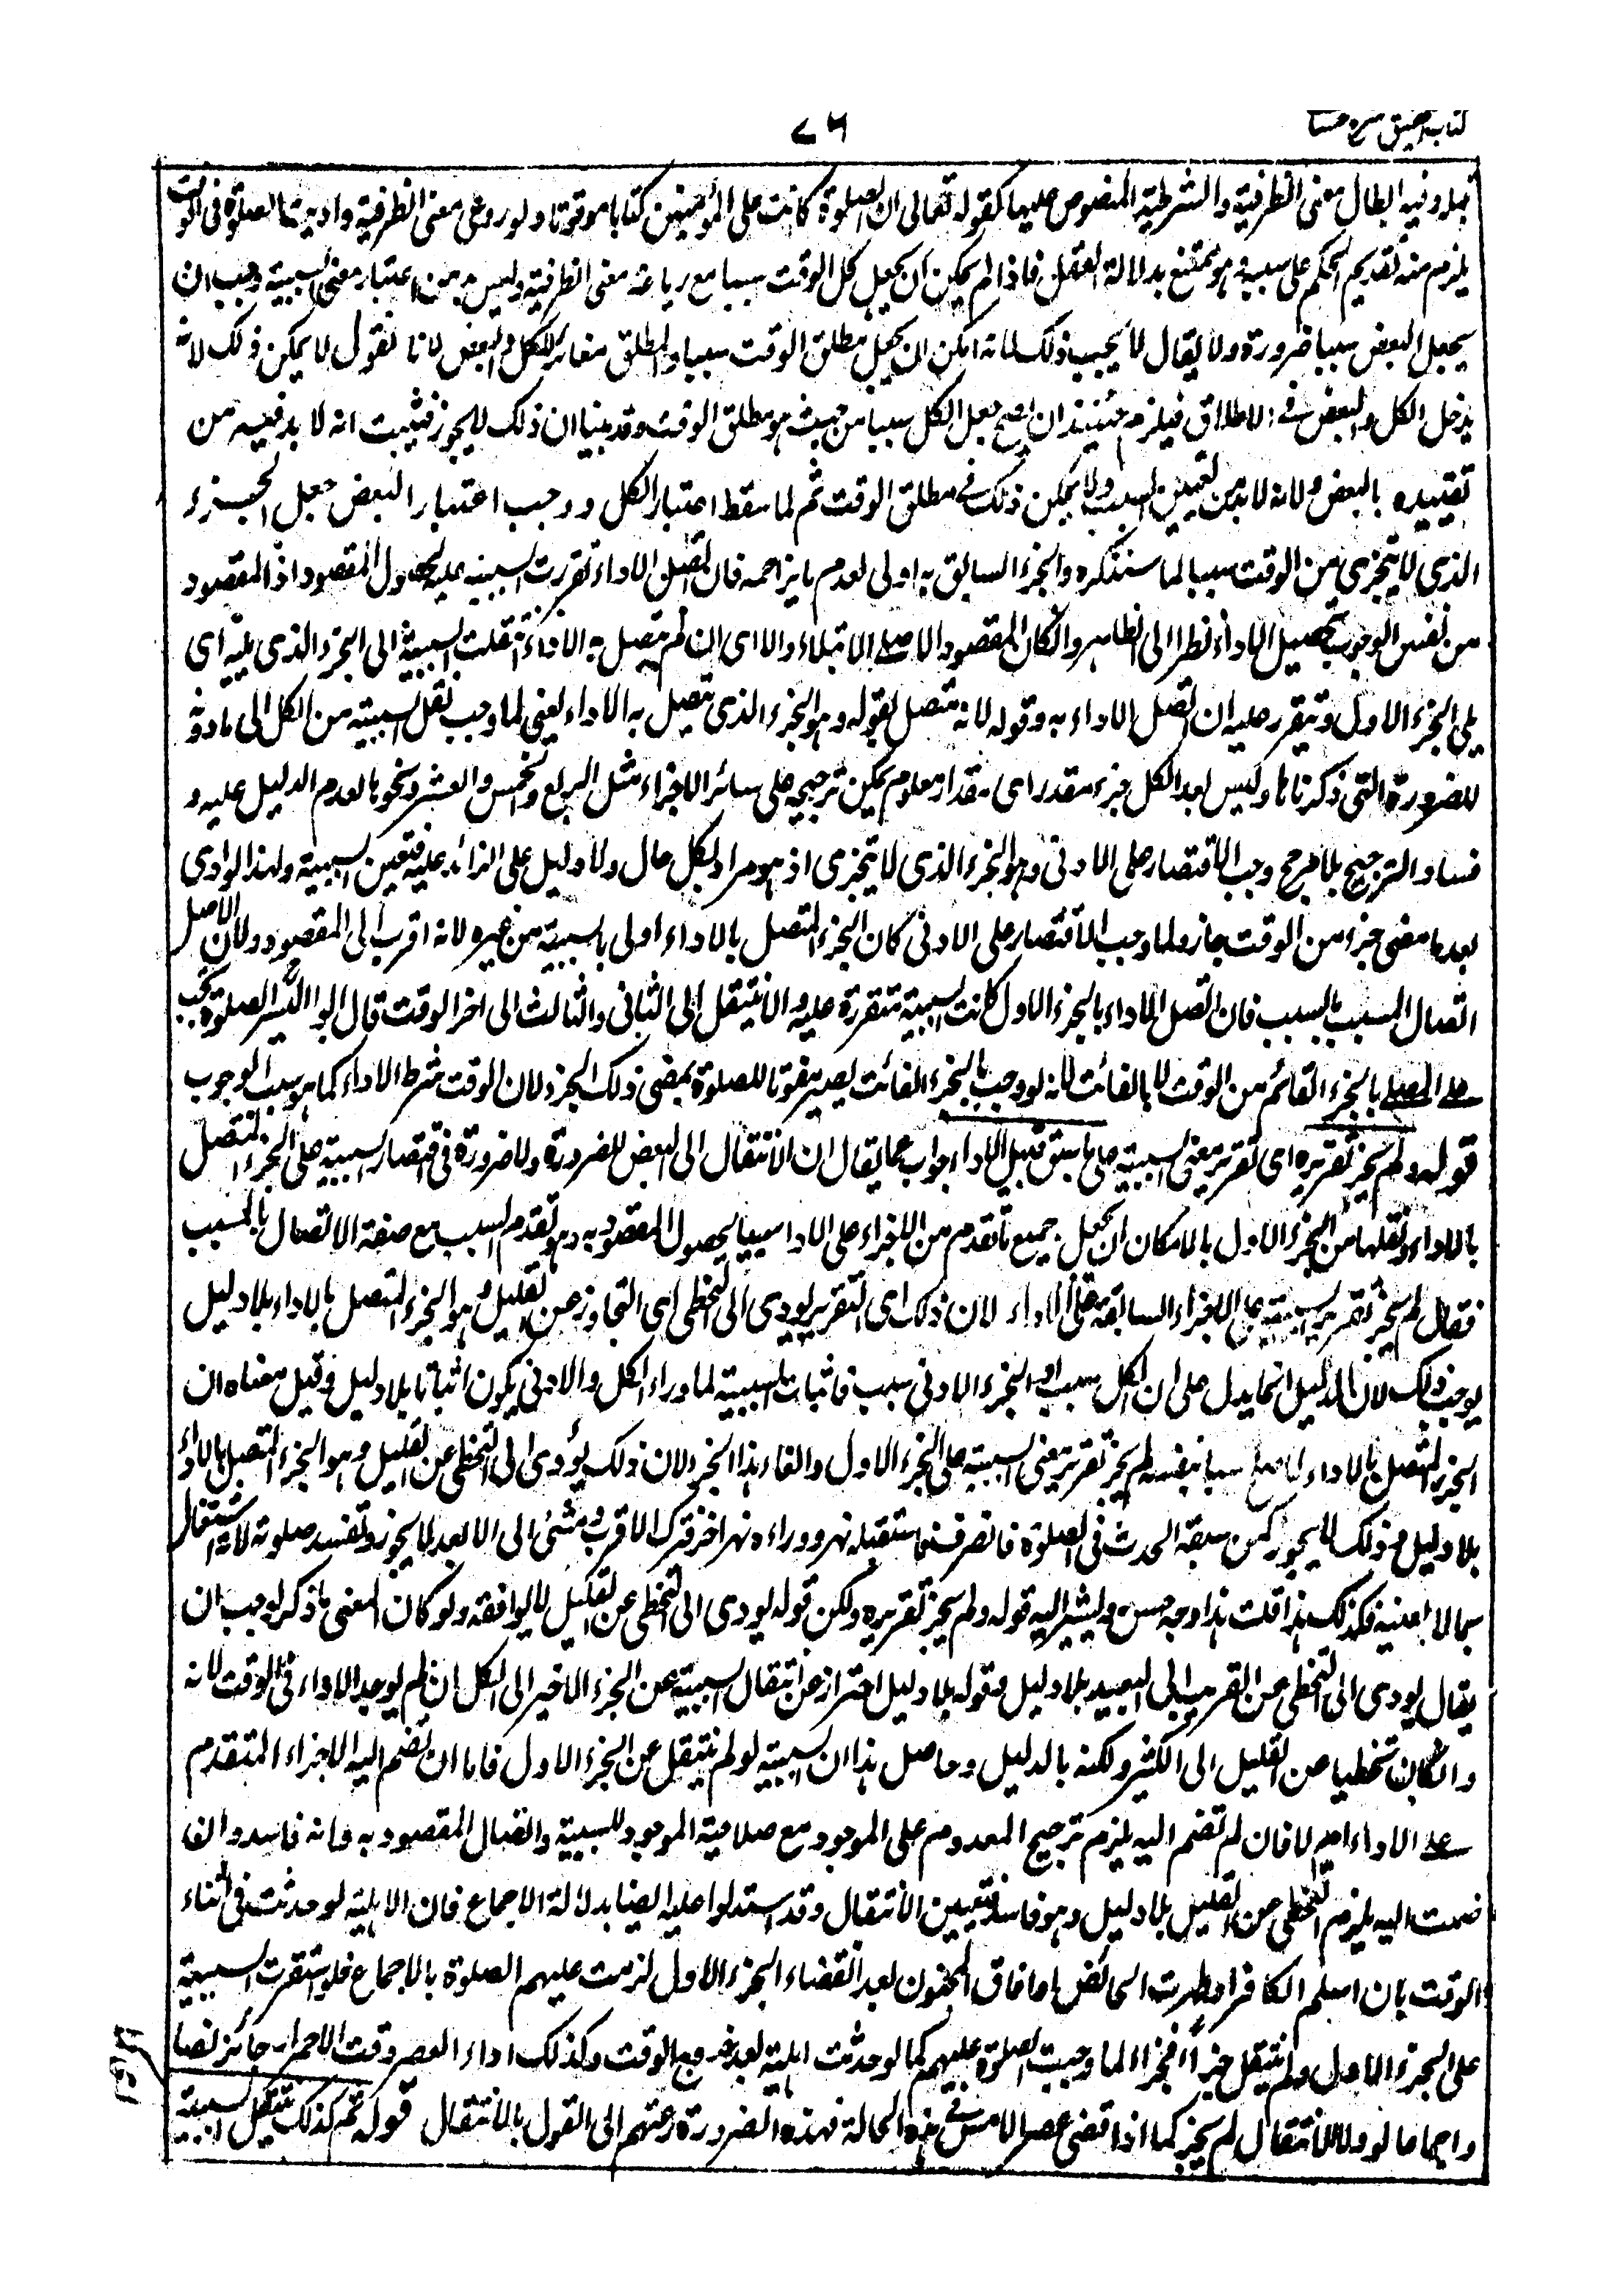 ٧٦
كتاب التحقيق شرح حسامى
قبله وفيه ابطال معنى الظرفية والشرطية المنصوص عليها كقوله تعالى ان الصلوة كانت على المؤمنين كتابا موقوتا ولو روعى معنى الظرفية واديت الصلوة فى الوقت
يلزم منه تقديم الحكم على سببه وهو ممتنع بدلالة العقل فاذا لم يمكن ان يجعل كل الوقت سببا مع رعاية معنى الظرفية وليس بد من اعتبار معنى السببية وجب ان
يجعل البعض سببا ضرورة ولا يقال لا يجب ذلك لانه امكن ان يجعل مطلق الوقت سببا والمطلق مغائر للكل والبعض لانا نقول لا يمكن ذلك لانه
يدخل الكل والبعض فى الاطلاق فيلزم حينئذ ان يصح جعل الكل سببا من حيث هو مطلق الوقت وقد بينا ان ذلك لا يجوز فثبت انه لا بد فيه من
تقييده بالبعض ولانه لا بد من تعيين السبب ولا يمكن ذلك فى مطلق الوقت ثم لما سقط اعتبار الكل ووجب اعتبار البعض جعل الجزء
الذى لا يتجزى من الوقت سببا لما سنذكره والجزء السابق به اولى لعدم ما يزاحمه فان اتصل الاداء تقررت السببية عليه لحصول المقصود اذ المقصود
من نفس الوجوب تحصيل الاداء نظرا الى الظاهر وان كان المقصود الاصلى الابتلاء والا اى ان لم يتصل به الاداء انتقلت السببية الى الجزء الذى يليه اى
يلى الجزء الاول ويتقرر عليه ان اتصل الاداء به وقوله لانه متصل بقوله وهو الجزء الذى يتصل به الاداء يعنى لما وجب نقل السببية من الكل الى ما دونه
للضرورة التى ذكرناها وليس بعد الكل جزء مقدر اى مقدار معلوم يمكن ترجيحه على سائر الاجزاء مثل الربع والخمس والعشر ونحوها لعدم الدليل عليه و
فساد الترجيح بلا مرجح وجب الاقتصار على الادنى وهو الجزء الذى لا يتجزى اذ هو مراد بكل حال ولا دليل على الزائد عليه فتعين لسببية ولهذا لو ادى
بعد ما مضى جزء من الوقت جاز ولما وجب الاقتصار على الادنى كان الجزء المتصل بالاداء اولى بالسببية من غيره لانه اقرب الى المقصود ولان الاصل
اتصال المسبب بالسبب فان اتصل الاداء بالجزء الاول كانت السببية متقررة عليه والا تنتقل الى الثانى والثالث الى اخر الوقت قال ابو اليسر الصلوة تجب
على المصلى بالجزء القائم من الوقت لا بالفائت لانه لو وجب بالجزء الفائت يصير مفوتا للصلوة بمضى ذلك الجزء لان الوقت شرط الاداء كما هو سبب الوجوب
قوله ولم يجز تقريره اى تقرير معنى السببية على ما سبق قبيل الاداء جواب عما يقال ان الانتقال الى البعض للضرورة ولا ضرورة فى اقتصار السببية على الجزء المتصل
بالاداء ونقلها من الجزء الاول بالامكان ان يجعل جميع ما تقدم من الاجزاء على الاداء سببا لحصول المقصود به وهو تقدم السبب مع صفة الاتصال بالمسبب
فقال لم يجز تقرير السببية على الاجزاء السابقة على الاداء لان ذلك اى التقرير يودى الى التخطى اى التجاوز عن القليل وهو الجزء المتصل بالاداء بلا دليل
يوجب ذلك لان الدليل انما يدل على ان الكل سبب او الجزء الادنى سبب فاثبات السببية لما وراء الكل والادنى يكون اثباتا بلا دليل وقيل معناه ان
الجزء المتصل بالاداء لما صلح سببا بنفسه لم يجز تقرير معنى السببية على الجزء الاول والغاء هذا الجزء لان ذلك يؤدى الى التخطى عن القليل وهو الجزء المتصل بالاداء
بلا دليل وذلك لا يجوز كمن سبقه الحدث فى الصلوة فانصرف فاستقبله نهر ووراءه نهر اخر فترك الاقرب ومشى الى الابعد لا يجوز وتفسد صلوته لانه اشتغال
بما لا يعنيه فكذلك هذا قلت هذا وجه حسن ويشير اليه قوله ولم يجز تقريره ولكن قوله يودى الى التخطى عن القليل لا يوافقه ولو كان المعنى ما ذكر لوجب ان
يقال يودى الى التخطى عن القريب الى البعيد بلا دليل وقوله بلا دليل احتراز عن انتقال السببية عن الجزء الاخير الى الكل ان لم يوجد الاداء فى الوقت لانه
وان كان تخطيا عن القليل الى الكثير ولكنه بالدليل وحاصل هذا ان السببية لو لم تنتقل عن الجزء الاول فاما ان تضم اليه الاجزاء المتقدم
على الاداء ام لا فان لم تضم اليه يلزم ترجيح المعدوم على الموجود مع صلاحية الموجود للسببية واتصال المقصود به وانه فاسد وان
ضمت اليه يلزم التخطى عن القليل بلا دليل وهو فاسد فتعين الانتقال وقد استدلوا عليه ايضا بدلالة الاجماع فان الاهلية لو حدثت فى اثناء
الوقت بان اسلم الكافر او طهرت الحائض او افاق المجنون بعد انقضاء الجزء الاول لزمت عليهم الصلوة بالاجماع فلو استقرت السببية
على الجزء الاول ولم تنتقل جزءا فجزءا لما وجبت الصلوة عليهم كما لو حدثت اهلية بعد خروج الوقت وكذلك اداء العصر وقت الاحمرار جائز نصا
واجماعا لو ولا الانتقال لم يجز كما اذا قضى عصر الامس فى هذه الحالة فهذه الضرورة دعتهم الى القول بالانتقال قوله ثم كذلك تنتقل السببية